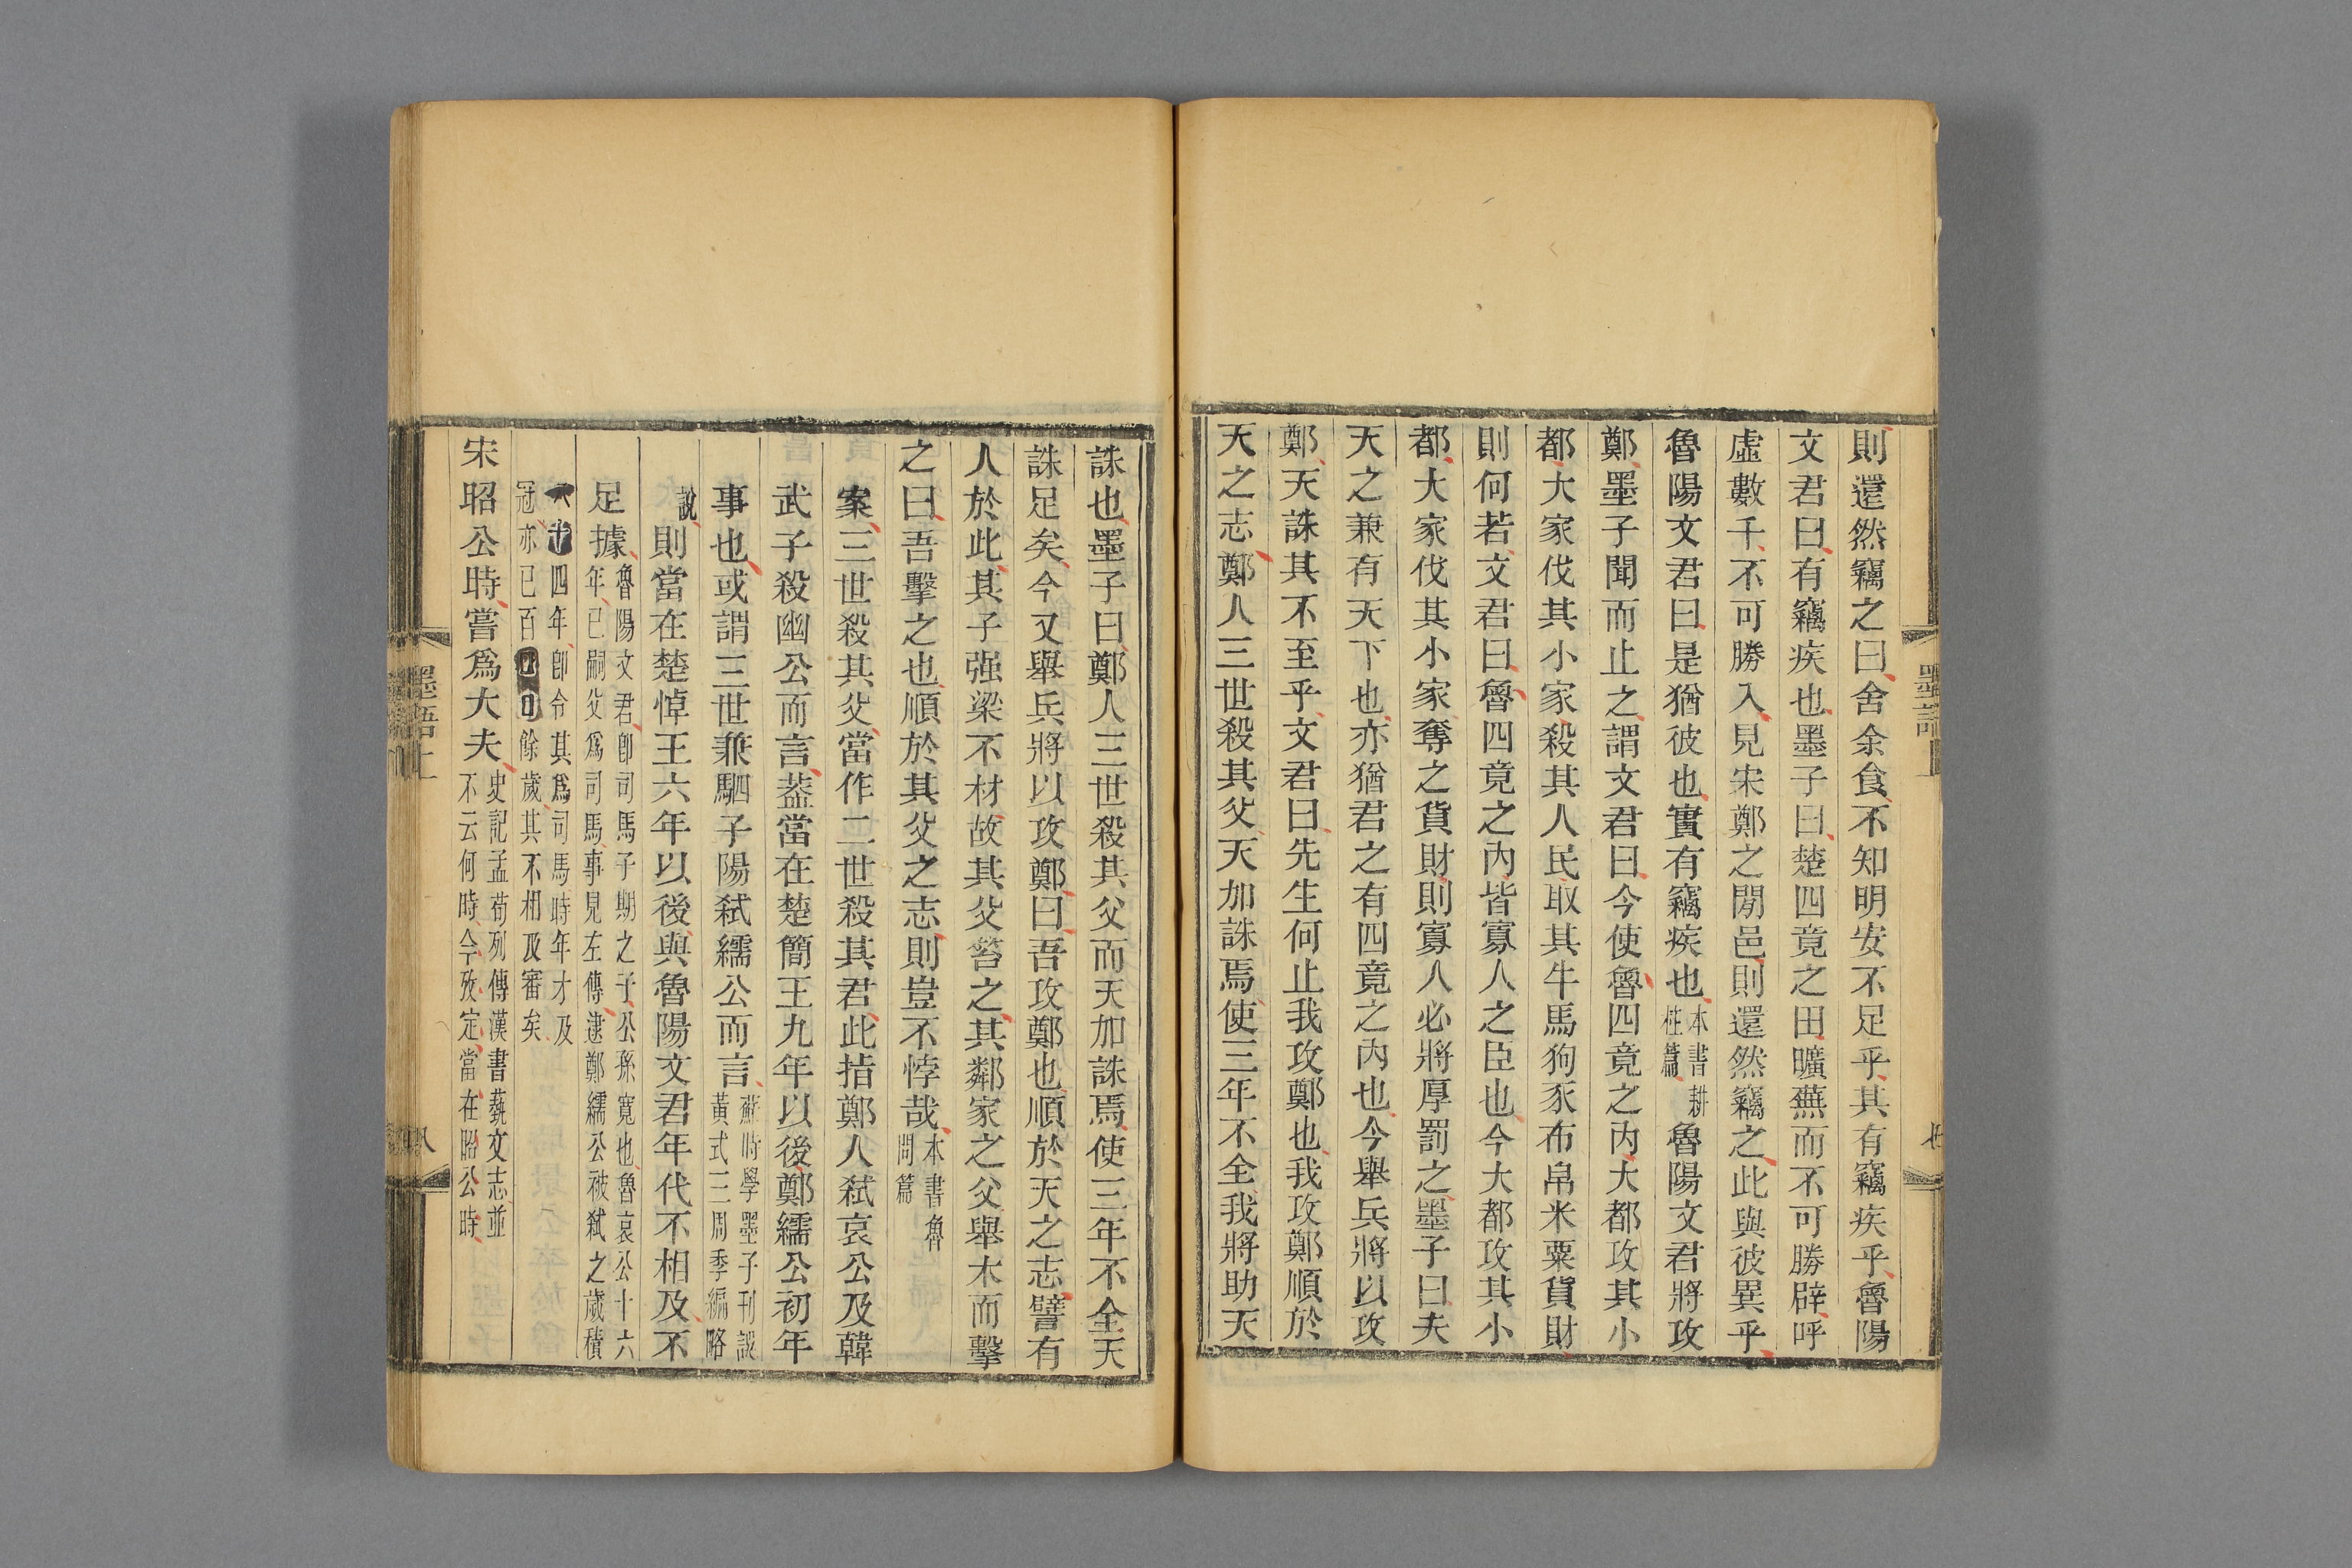 則還然竊之曰舍余食不知明安不足乎其有竊疾乎魯陽
文君曰有竊疾也墨子曰楚四竟之田曠蕪而不可勝辟呼
虛數千不可勝入見宋鄭之閒邑則還然竊之此與彼異乎
魯陽文君曰是猶彼也實有竊疾也本書耕柱篇魯陽文君將攻
鄭墨子聞而止之謂文君曰今使魯四竟之內大都攻其小
都大家伐其小家殺其人民取其牛馬狗豕布帛米粟貨財
則何若文君曰魯四竟之內皆寡人之臣也今大都攻其小
都大家伐其小家奪之貨財則寡人必將厚罰之墨子曰夫
天之兼有天下也亦猶君之有四竟之內也今舉兵將以攻
鄭天誅其不至乎文君曰先生何止我攻鄭也我攻鄭順於
天之志鄭人三世殺其父天加誅焉使三年不全我將助天
墨語上
七
誅也墨子曰鄭人三世殺其父而天加誅焉使三年不全天
誅足矣今又舉兵將以攻鄭曰吾攻鄭也順於天之志譬有
人於此其子強梁不材故其父笞之其鄰家之父舉木而擊
之曰吾擊之也順於其父之志則豈不悖哉本書魯問篇
案三世殺其父當作二世殺其君此指鄭人弒哀公及韓
武子殺幽公而言葢當在楚簡王九年以後鄭繻公初年
事也或謂三世兼駟子陽弒繻公而言蘇時學墨子刊誤黃式三周季編略
說則當在楚悼王六年以後與魯陽文君年代不相及不
足據魯陽文君卽司馬子期之子公孫寬也魯哀公十六年已嗣父爲司馬事見左傳逮鄭繻公被弒之歲積
八十四年卽令其爲司馬時年才及冠亦已百餘歲其不相及審矣
宋昭公時嘗爲大夫史記孟荀列傳漢書藝文志並不云何時今攷定當在昭公時
墨語上
八